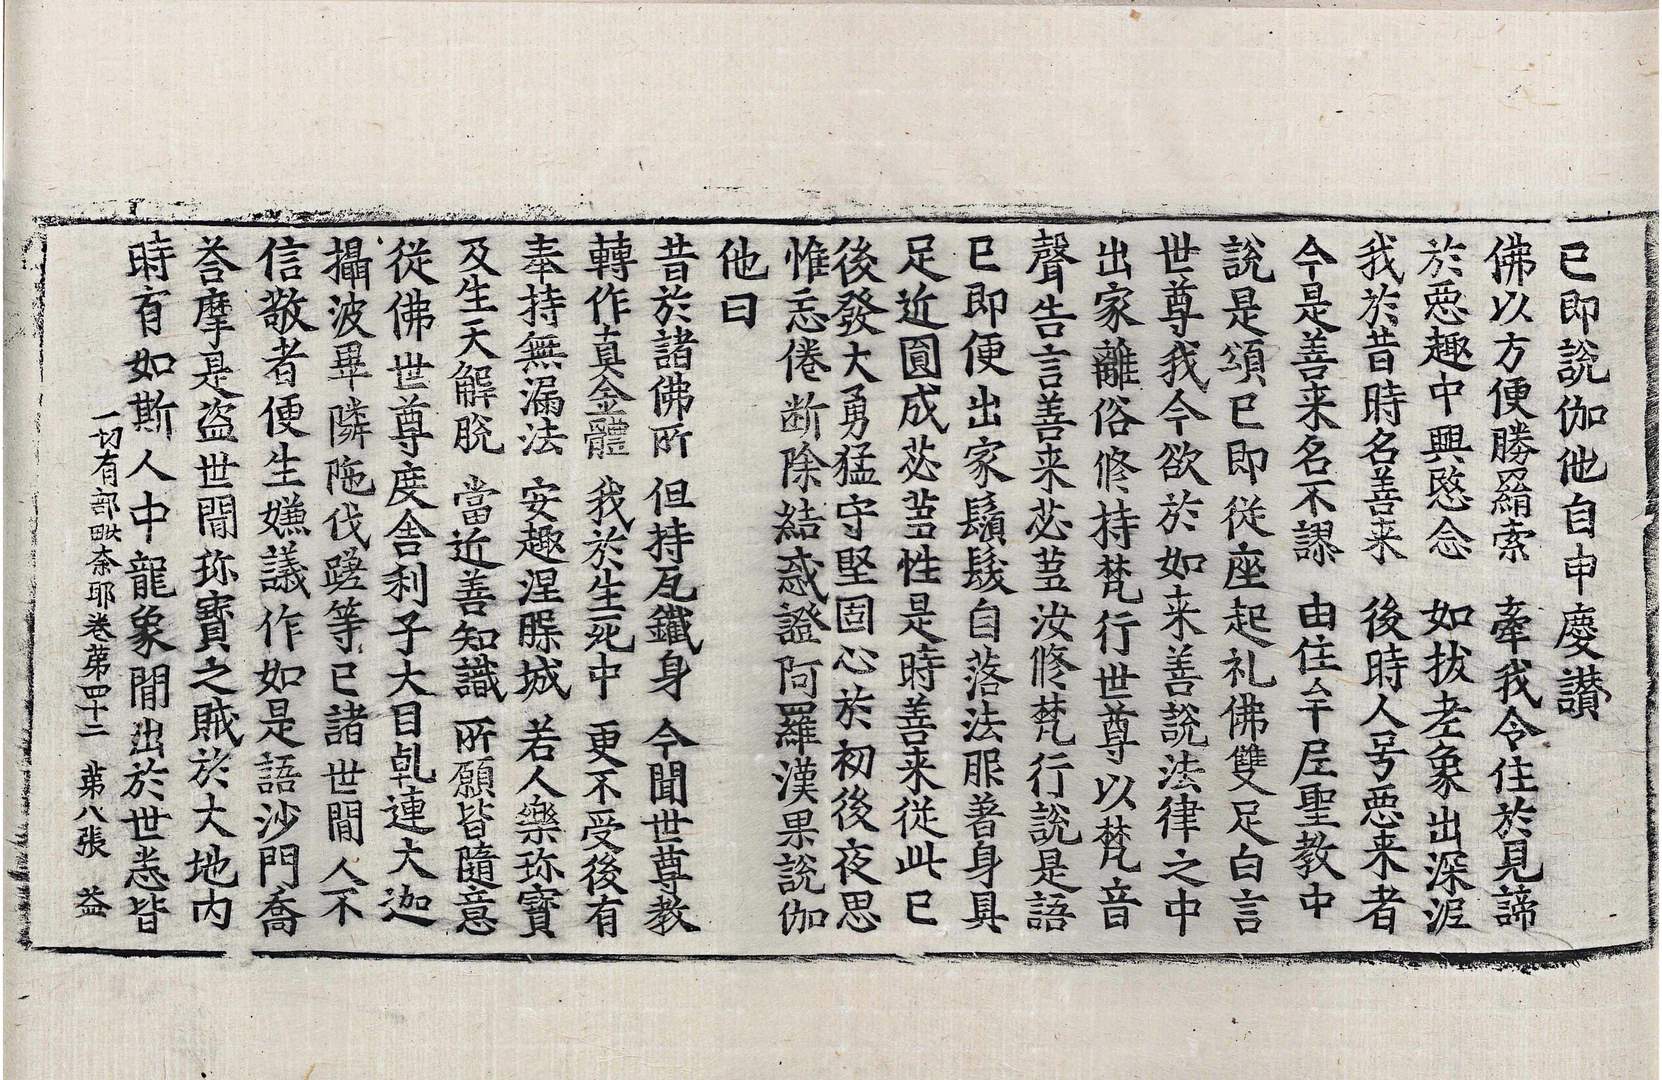 已即說伽他自申慶讚
佛以方便勝羂索　牽我令住於見諦
於惡趣中興愍念　如拔老象出深泥
我於昔時名善来　後時人号惡来者
今是善来名不謬　由住牟尼聖教中
說是頌已即從座起礼佛雙足白言
世尊我今欲於如来善說法律之中
出家離俗修持梵行世尊以梵音
聲告言善来苾芻汝修梵行說是語
已即便出家鬚髮自落法服著身具
足近圓成苾芻性是時善来從此已
後發大勇猛守堅固心於初後夜思
惟忘倦断除結惑證阿羅漢果說伽
他曰
昔於諸佛所　但持瓦鐵身　今聞世尊教
轉作真金體　我於生死中　更不受後有
奉持無漏法　安趣涅槃城　若人樂珎寶
及生天解脫　當近善知識　所願皆隨意
從佛世尊度舍利子大目乹連大迦
攝波畢隣陁伐蹉等已諸世間人不
信敬者便生嫌議作如是語沙門喬
荅摩是盗世間珎寶之賊於大地内
時有如斯人中龍象間出於世悉皆
一切有部毗奈耶卷苐四十二　苐八張　益